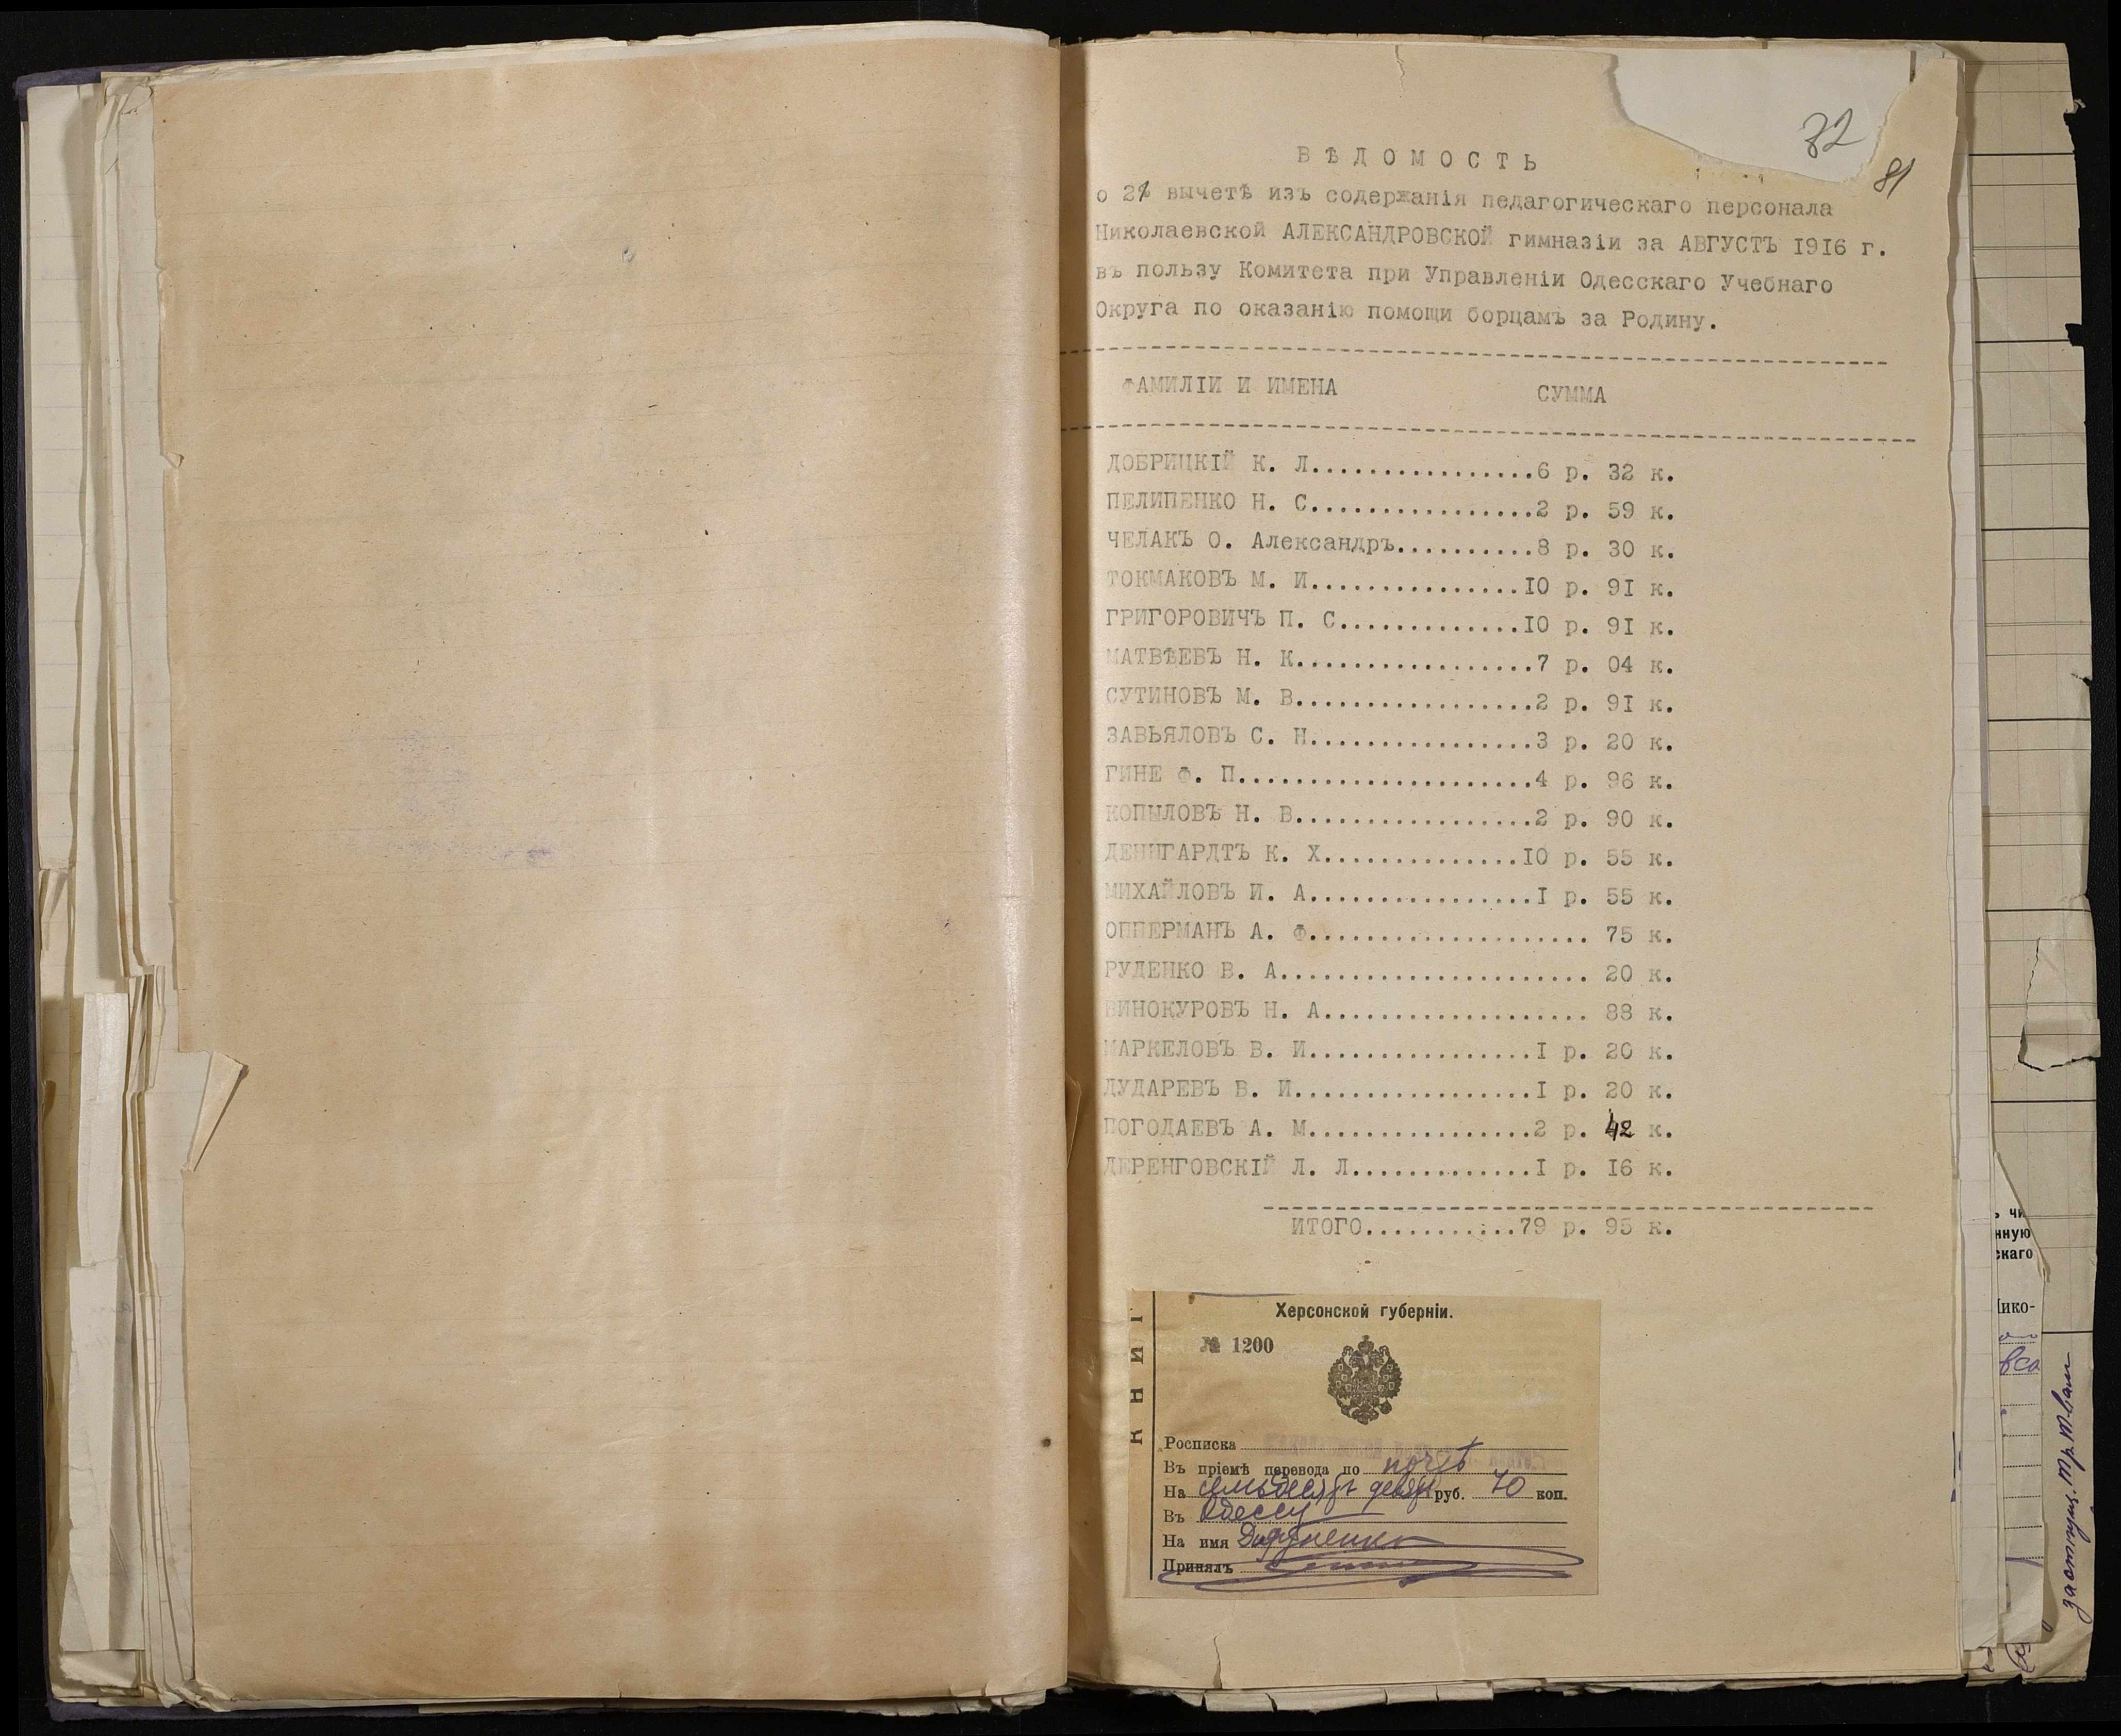 32
81
ВѢДОМОСТЬ
о 2% вычетѣ изъ содержанія педагогическаго персонала
Николаевской АЛЕКСАНДРОВСКОЙ гимназіи за АВГУСТЪ 1916 г.
въ пользу Комитета при Управленіи Одесскаго Учебнаго
Округа по оказанію помощи борцамъ за Родину.
ФАМИЛІИ И ИМЕНА СУММА
ДОБРИЦКІЙ К. Л................6 р. 32 к.
ПЕЛИПЕНКО Н. С................2 р. 59 к.
ЧЕЛАКЪ О. Александръ..........8 р. 30 к.
ТОКМАКОВЪ М. И...............10 р. 91 к.
ГРИГОРОВИЧЪ П. С.............10 р. 91 к.
МАТВѢЕВЪ Н. К.................7 р. 04 к.
СУТИНОВЪ М. В.................2 р. 91 к.
ЗАВЬЯЛОВЪ С. Н................3 р. 20 к.
ГИНЕ Ф. П.....................4 р. 96 к.
КОПЫЛОВЪ Н. В.................2 р. 90 к.
ДЕННГАРДТЪ К. Х..............10 р. 55 к.
МИХАЙЛОВЪ И. А................1 р. 55 к.
ОППЕРМАНЪ А. Ф.................... 75 к.
РУДЕНКО В. А...................... 20 к.
ВИНОКУРОВЪ Н. А................... 88 к.
МАРКЕЛОВЪ В. И................1 р. 20 к.
ДУДАРЕВЪ В. И.................1 р. 20 к.
ПОГОДАЕВЪ А. М................2 р. 42 к.
ДЕРЕНГОВСКІЙ Л. Л.............1 р. 16 к.
ИТОГО...........79 р. 95 к.
Херсонской губерніи.
№ 1200
Росписка
Въ пріемѣ перевода по почтѣ
На семьдесятъ девять руб. 70 коп.
Въ Одессу
На имя
Принялъ
нную
скаго